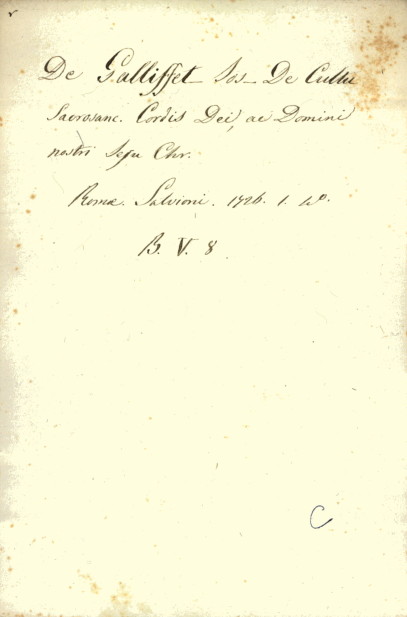 De Galliffet Jos. De Cultu
Sacrosanc. Cordis Dei, ac Domini
nostri Jesu Chr.
Romæ. Salvioni. 1726. 1. 4º.
B. V. 8
C